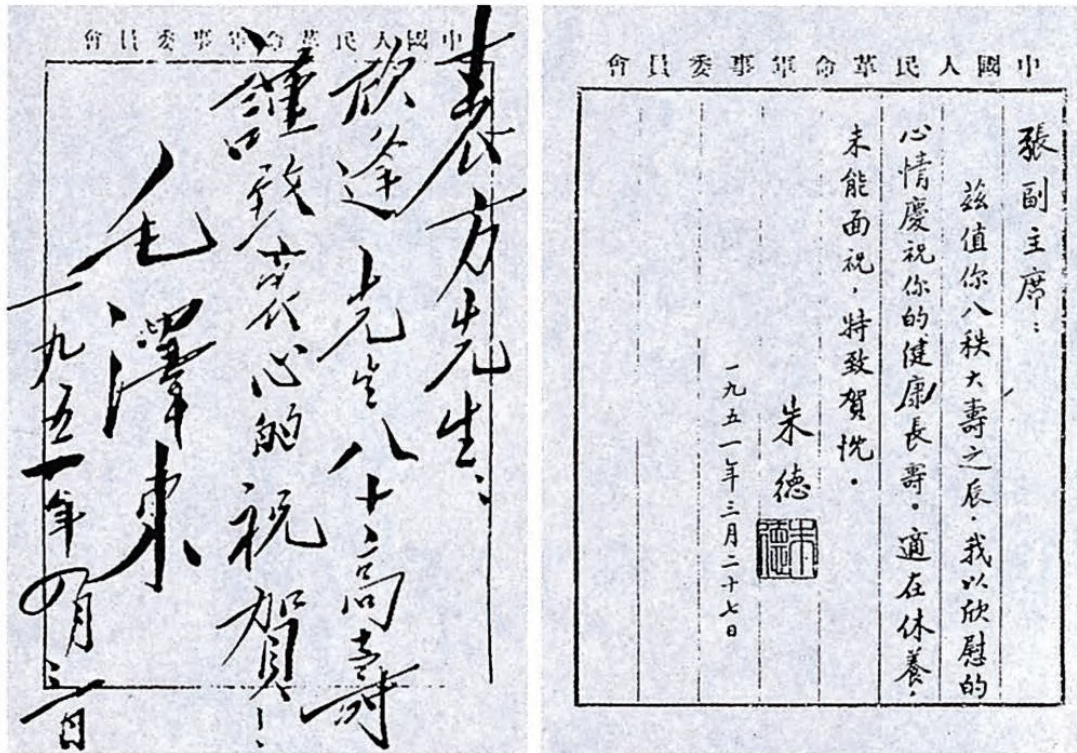 中國人民革命軍事委員會
表方先生：
欣逢 先生八十高壽
謹致衷心的祝賀！
毛澤東
一九五一年四月二日
中國人民革命軍事委員會
張副主席：
茲值你八秩大壽之辰，我以欣慰的
心情慶祝你的健康長壽。適在休養，
未能面祝，特致賀忱。
朱德
朱德
一九五一年三月二十七日